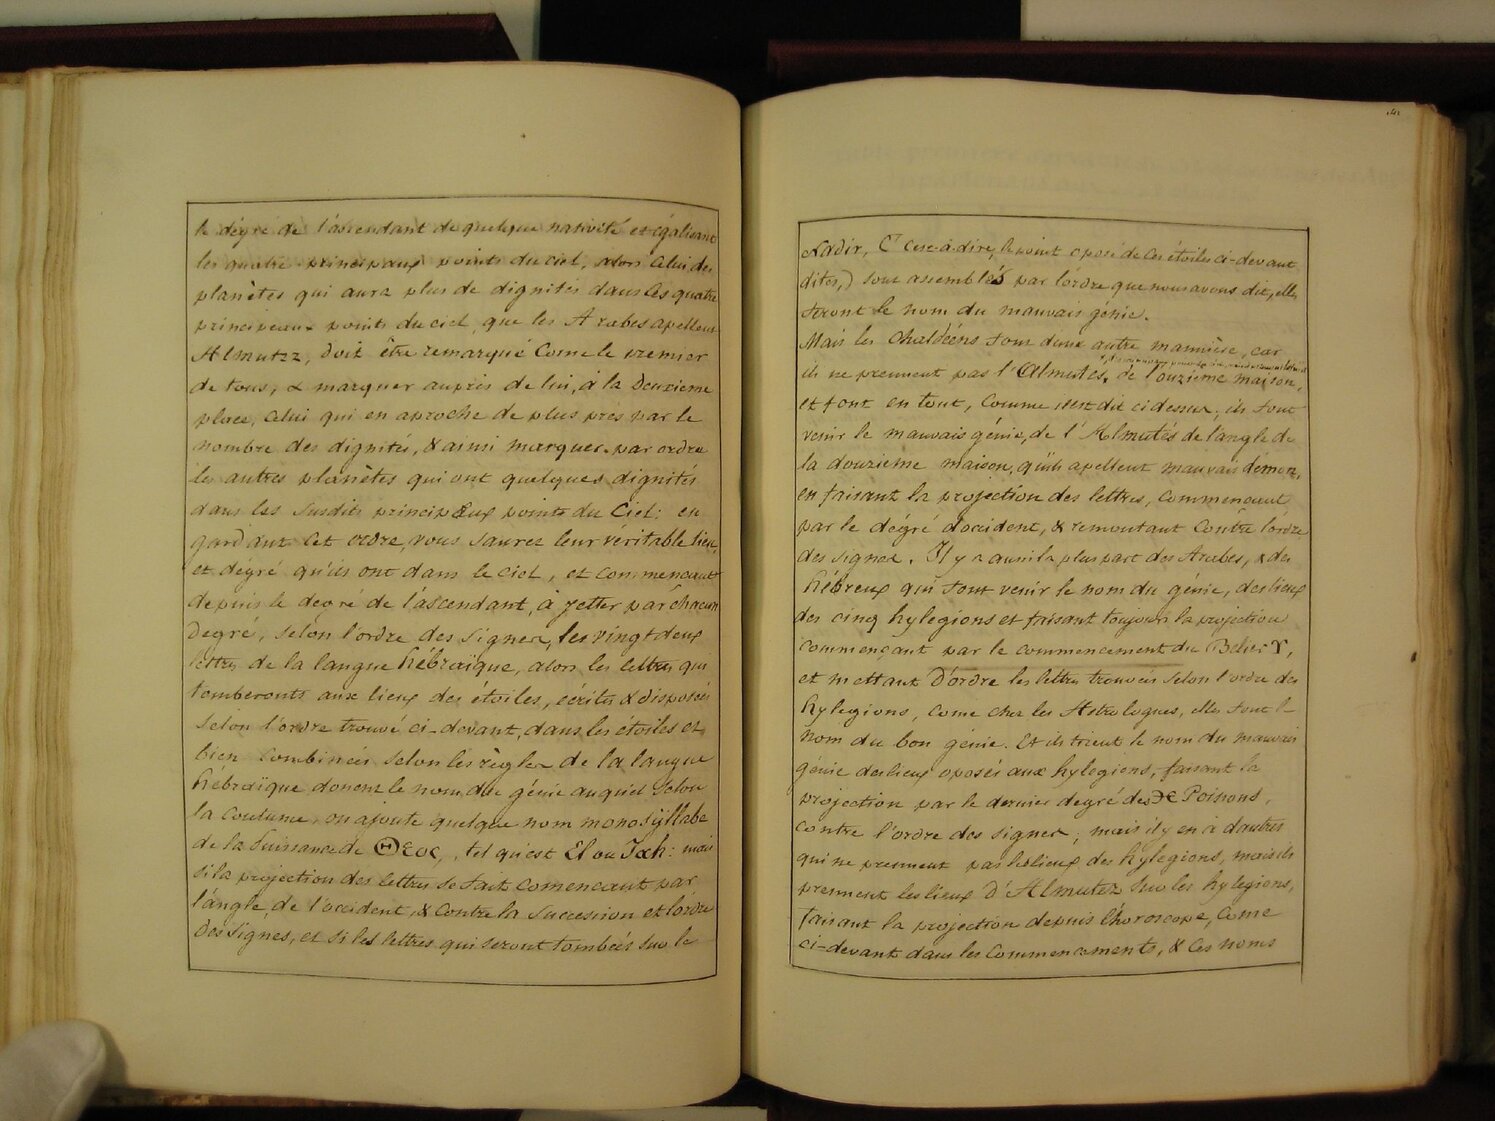 le dégré de l'ascendant de quelque nativité et égalisant
les quatre principaux points du ciel, alors celui des
planètes qui aura plus de dignités dans les quatre
principeaux points du ciel, que les Arabes apellent
Almutez, doit être remarqué Come le premier
de tous; & marquer auprès de lui, à la deuzieme
place, celui qui en aproche de plus près par le
nombre des dignités, & ainsi marquer par ordre
les autres planètes qui ont quelques dignités
dans les susdits principaux points du Ciel: en
gardant cet ordre, vous saurez leur véritable lieu,
et degré qu'ils ont dans le ciel, et commencant
depuis le degré de l'ascendant, à jetter par chacun
degré, selon l'ordre des signes, les vingt deux
lettres de la langue hébraïque, alors les lettres qui
tomberonts aux lieux des étoiles, écrites & disposées
selon l'ordre trouvé ci-devant, dans les étoiles et
bien combinées selon les règles de la langue
hébraïque donent le nom du génie auquel selon
la Coutume, on ajoute quelque nom monosÿllabe
de la Puissance de Θεος, tel qu'est El ou Jah: mais
si la projection des lettres se fait comencant par
l'angle, de l'occident, & contre la succession et l'ordre
Des signes, et si les lettres qui seront tombées sur le
Nadir, (C'est-à-dire, le point oposé de ces étoiles ci-devant
dites,) sont assemblés par l'ordre que nous avons dit, elles
feront le nom du mauvais génie.
Mais les Chaldéens font d'une autre mannière, car
ils ne prennent pas l'Almutés, de l'onzieme maison,
et font en tout, comme il est dit ci dessus; ils font
venir le mauvais génie, de l'Almutés de l'angle de
la douzieme maison, qu'ils apellent mauvais démon,
en faisant la projection des lettres, commencant
par le dégré d'occident, & remontant contre l'ordre
des signes. Il y a aussi la plus part des Arabes, & des
hébreux qui font venir le nom du génie, des lieux
des cinq hylegions et faisant toujours la projection
commençant par le commencement du Belier ♈,
et mettant D'ordre les lettres trouvées selon l'ordre des
hylegions, come chez les Astrologues, elles font le
nom du bon génie. Et ils tirent le nom du mauvais
génie des lieux oposés aux hylegions, faisant la
projection par le dernier degré des ♓ Poissons,
contre l'ordre des signes; mais il y en à dautres
qui ne prennent pas les lieux des hylegions, mais ils
prennent les lieux D'Almutez sur les hylegions,
faisant la projection depuis l'horoscope, Come
ci-devant dans les commencements, & ces noms